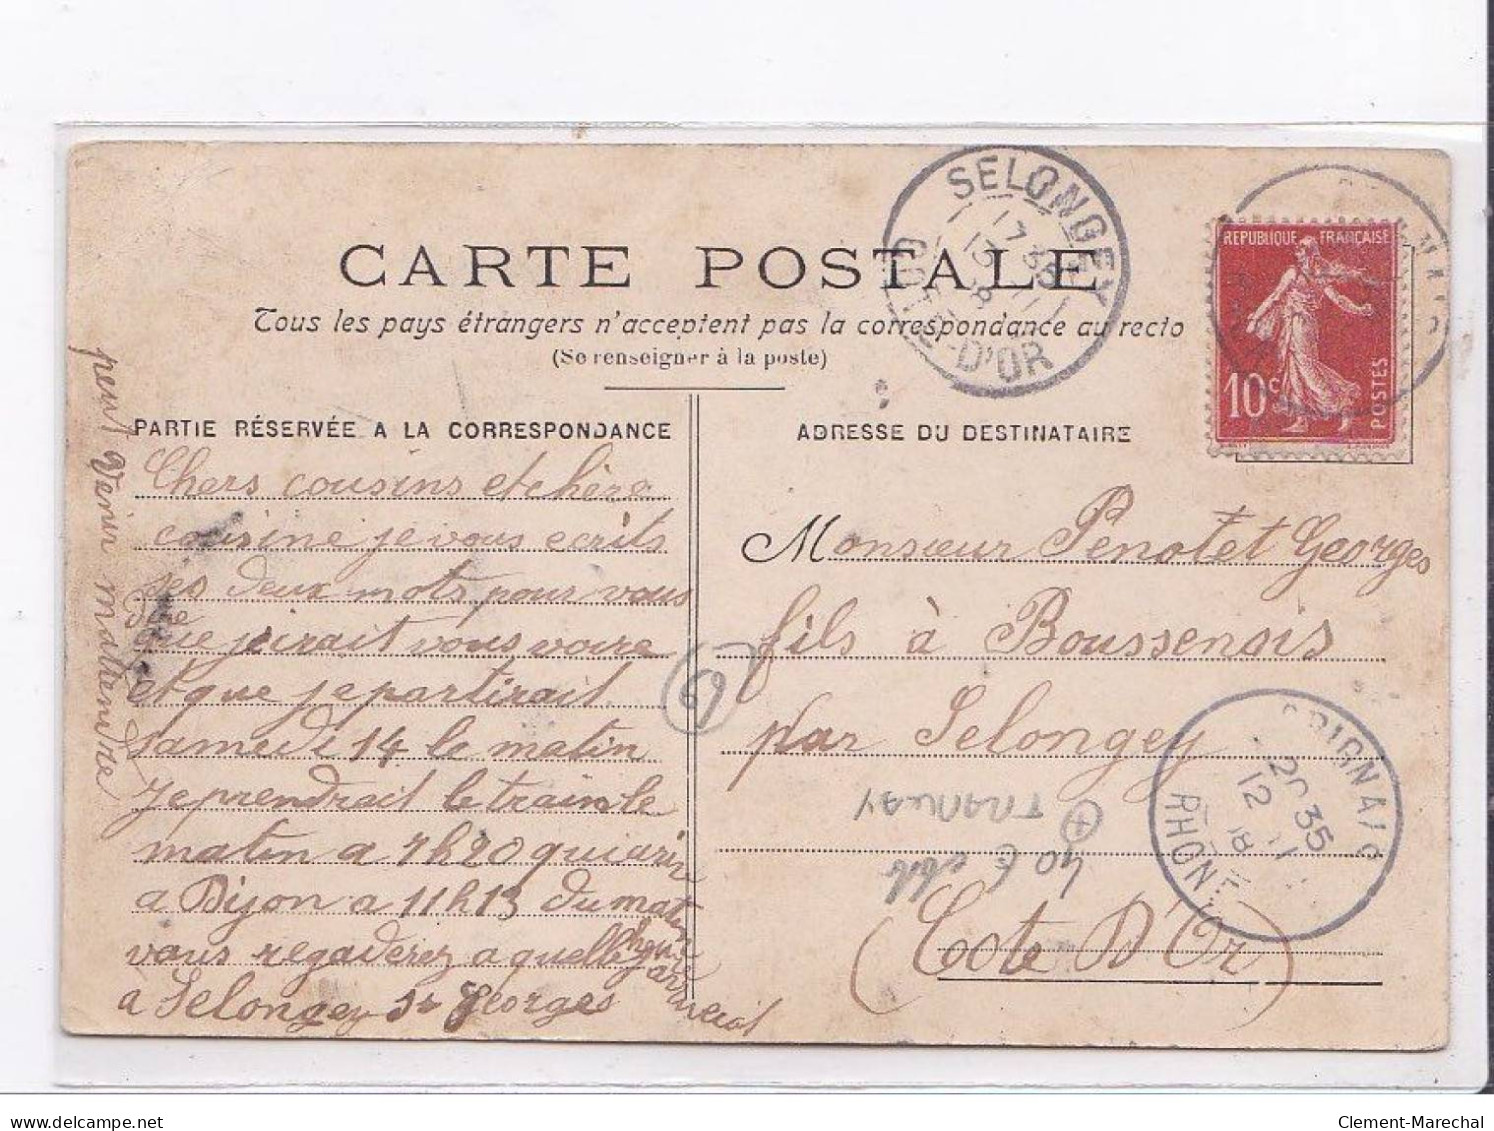 CARTE POSTALE
Tous les pays étrangers n'acceptent pas la correspondance au recto
(Se renseigner à la poste)
PARTIE RÉSERVÉE A LA CORRESPONDANCE
Chers cousins et chère
cousine je vous ecrits
ses deux mots pour vous
dire
que j'irait vous voire
et que je partirait
samedi 14 le matin
Je prendrait le train le
matin a 7h20 qui arin
a Dijon a 11h13 du matin
vous regaderez a quelle heure
a Selongey si Georges
peut venir m'attendre
ADRESSE DU DESTINATAIRE
Monsieur Penotet Georges
fils à Boussenois
par Selongey
(Cote D'Or)
SELONGEY
17 35
COTE-D'OR
REPUBLIQUE FRANÇAISE
10c
POSTES
BRIGNAIS
20 35
12 11
RHONE
69
TRAMWAY
delcampe.net
Clement-Marechal